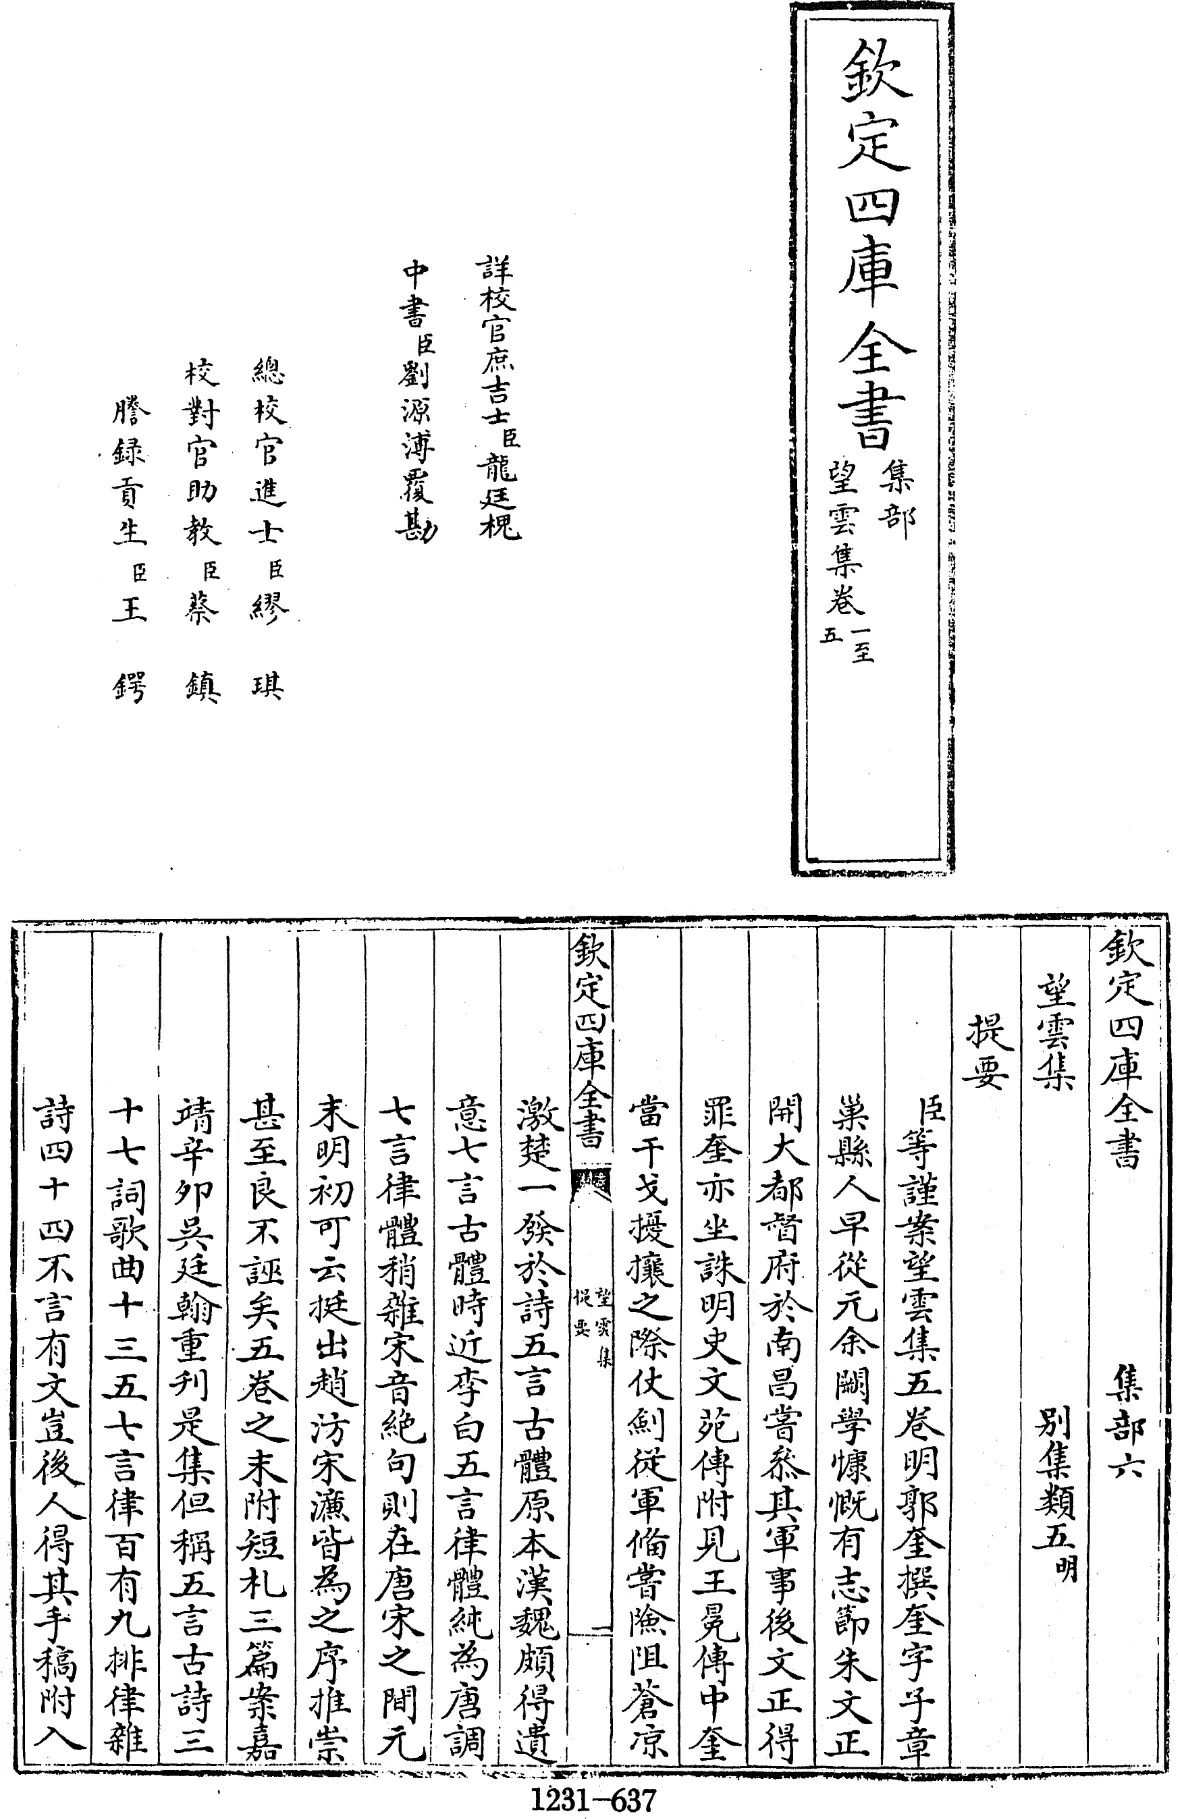 欽定四庫全書
集部
望雲集卷一至五
詳校官庶吉士臣龍廷槐
中書臣劉源溥覆勘
總校官進士臣繆琪
校對官助教臣蔡鎮
謄錄貢生臣王鍔
欽定四庫全書 集部六
望雲集 別集類五明
提要
臣等謹案望雲集五卷明郭奎撰奎字子章
巢縣人早從元余闕學慷慨有志節朱文正
開大都督府於南昌嘗叅其軍事後文正得
罪奎亦坐誅明史文苑傳附見王冕傳中奎
當干戈擾攘之際仗劍從軍備嘗險阻蒼涼
欽定四庫全書
望雲集
提要
一
激楚一發於詩五言古體原本漢魏頗得遺
意七言古體時近李白五言律體純為唐調
七言律體稍雜宋音絕句則在唐宋之間元
末明初可云挺出趙汸宋濂皆為之序推崇
甚至良不誣矣五卷之末附短札三篇案嘉
靖辛卯吳廷翰重刋是集但稱五言古詩三
十七詞歌曲十三五七言律百有九排律雜
詩四十四不言有文豈後人得其手稿附入
1231-637